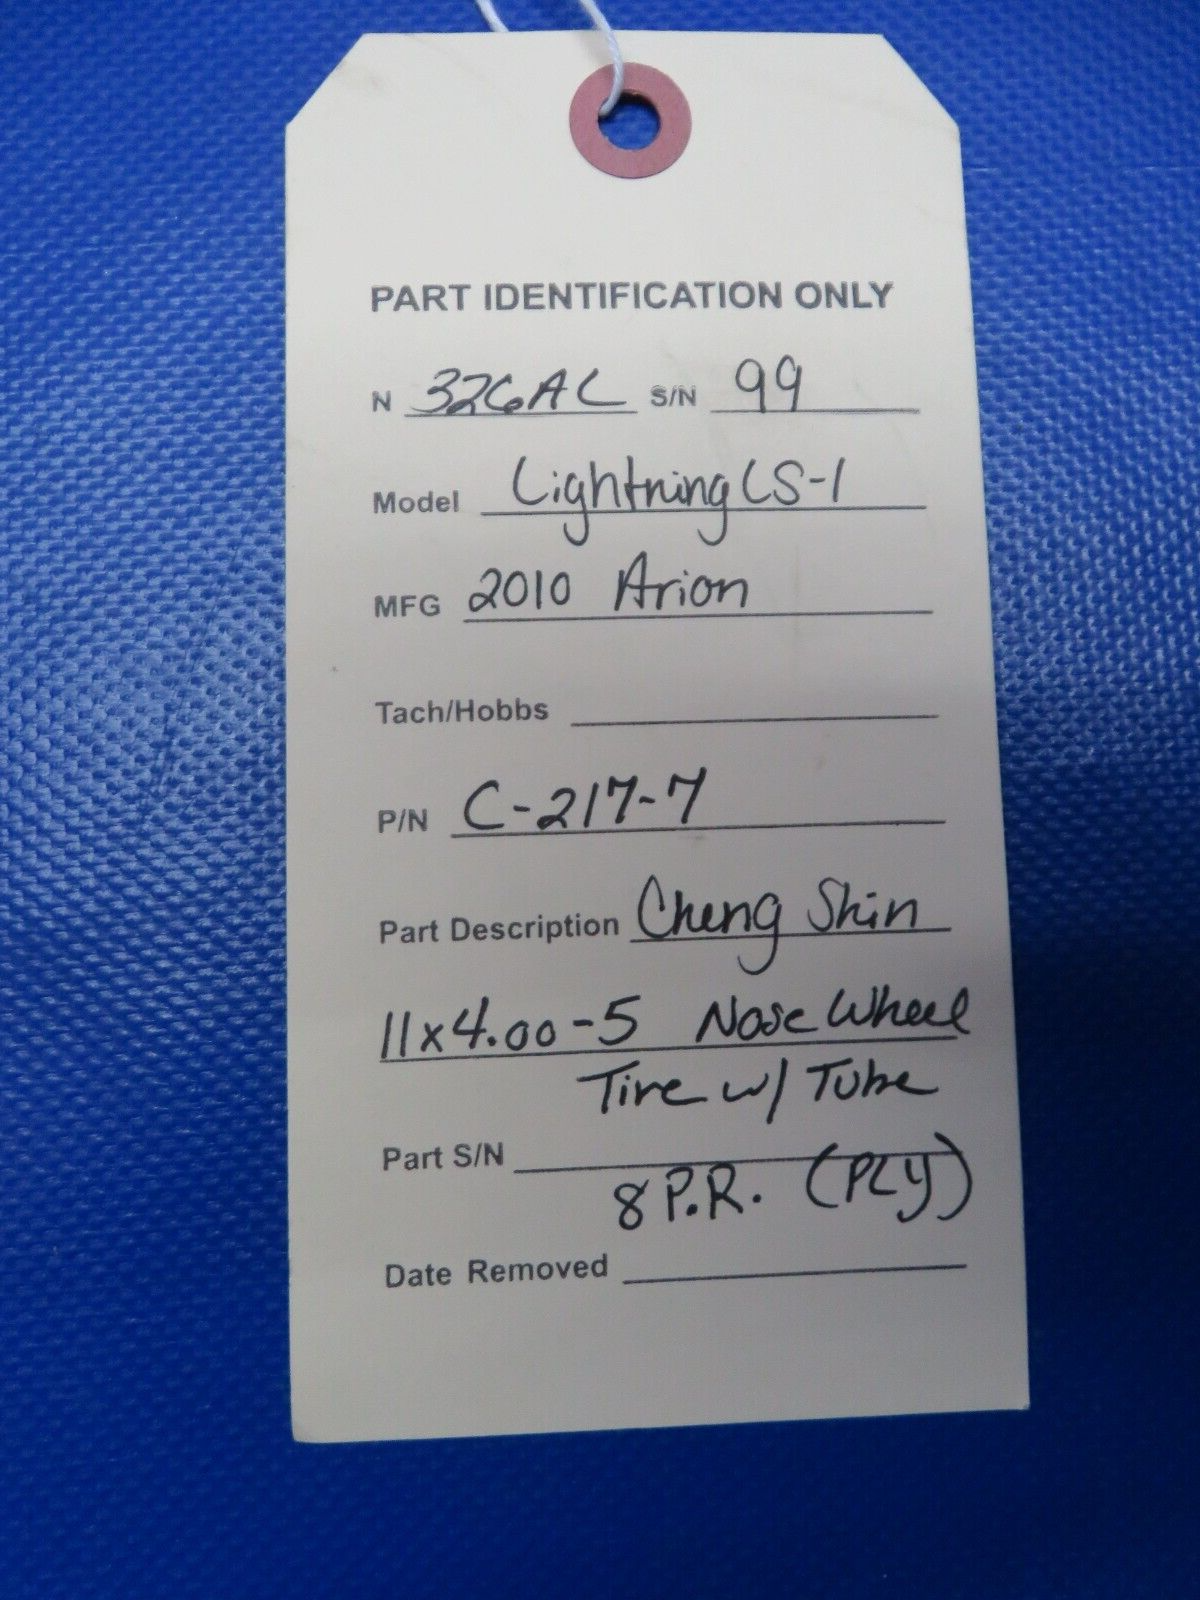 PART IDENTIFICATION ONLY
N 326AL S/N 99
Model Lightning LS-1
MFG 2010 Arion
Tach/Hobbs
P/N C-217-7
Part Description Cheng Shin
11x4.00-5 Nose Wheel
Tire w/ Tube
Part S/N
8 P.R. (PLY)
Date Removed